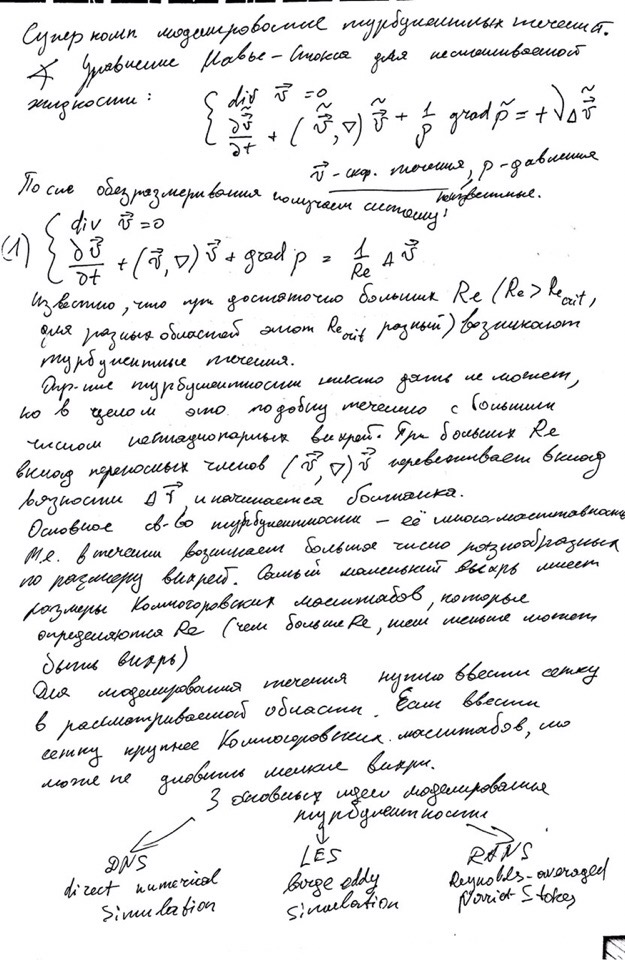 Суперкомп моделирование турбулентных течений.
∡ Уравнение Навье-Стокса для несжимаемой
жидкости: { div ṽ⃗ = 0
∂ṽ⃗/∂t + (ṽ⃗, ∇) ṽ⃗ + 1/ρ grad p̃ = + ν Δ ṽ⃗
v⃗ - скор. течения, p - давления
неизвестные.
После обезразмеривания получаем систему:
(1) { div v⃗ = 0
∂v⃗/∂t + (v⃗, ∇) v⃗ + grad p = 1/Re Δ v⃗
Известно, что при достаточно больших Re (Re > Re crit,
для разных областей этот Re crit разный) возникают
турбулентные течения.
Опр-ние турбулентности никто дать не может,
но в целом это подобну течению с большим
числом нестационарных вихрей. При больших Re
вклад переносных членов (v⃗, ∇) v⃗ перевешивает вклад
вязкости Δ v⃗, и начинается болтанка.
Основное св-во турбулентности - её многомасштабность
т.е. в течении возникает большое число разнообразных
по размеру вихрей. Самый маленький вихрь имеет
размеры Колмогоровских масштабов, которые
определяются Re (чем больше Re, тем меньше может
быть вихрь)
Для моделирования течения нужно ввести сетку
в рассматриваемой области. Если ввести
сетку крупнее Колмогоровских масштабов, то
можно не уловить мелкие вихри.
3 основных идеи моделирования
турбулентности
DNS LES RANS
direct numerical large eddy Reynolds-averaged
simulation simulation Stokes